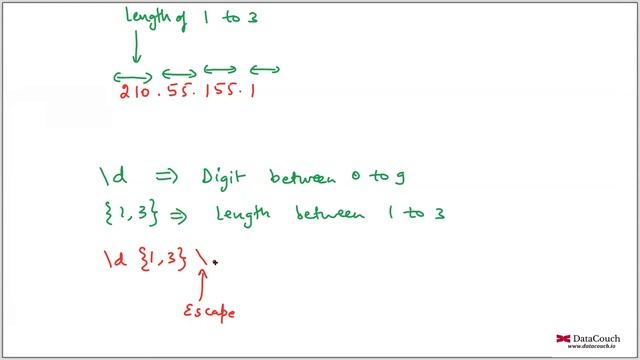 Length of 1 to 3
210.55.155.1
\d ⇒ Digit between 0 to 9
{1,3} ⇒ Length between 1 to 3
\d {1,3} \.
Escape
DataCouch
www.datacouch.io